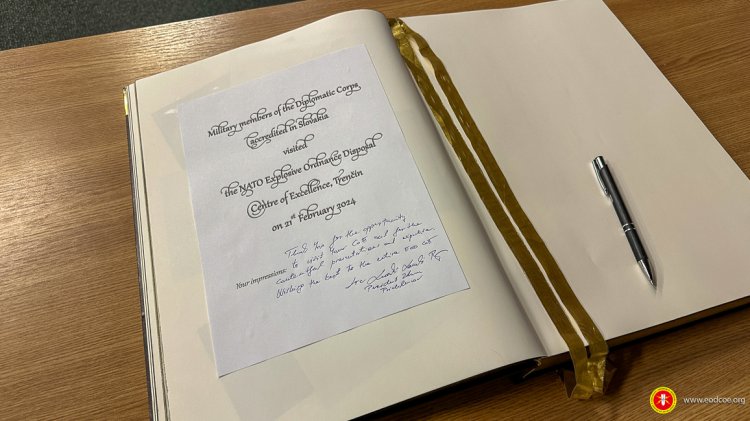 Military members of the Diplomatic Corps
accredited in Slovakia
visited
the NATO Explosive Ordnance Disposal
Centre of Excellence, Trenčín
on 21st February 2024
Thank You for the opportunity
to visit Your CoE and for the
presentations and
Your impressions:
the best to the entire EOD CoE
www.eodcoe.org